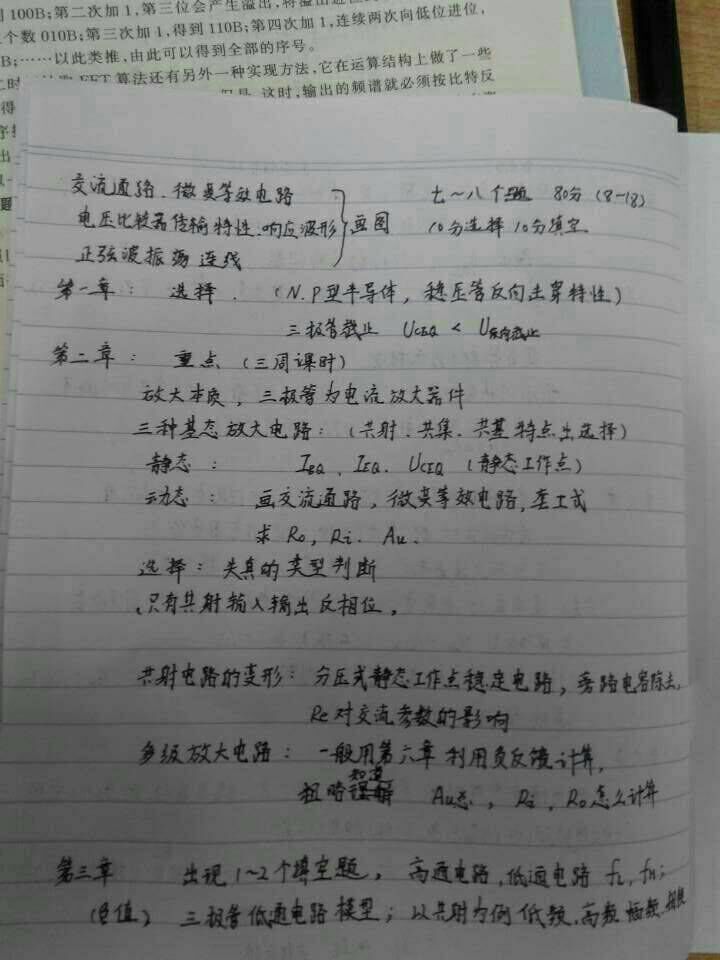 100B;第二次加1,第三位会产生溢出,将溢出
个数010B;第三次加1,得到110B;第四次加1,连续两次向低位进位,
B;……以此类推,由此可以得到全部的序号。
FFT算法还有另外一种实现方法,它在运算结构上做了一些
这时,输出的频谱就必须按比特反
交流通路.微变等效电路
电压比较器传输特性.响应波形 画图
正弦波振荡连线
七~八个题 80分(8-18)
10分选择 10分填空.
第一章: 选择.(N.P型半导体,稳压管反向击穿特性)
三极管截止 UCEQ <
第二章: 重点(三周课时)
放大本质,三极管为电流放大器件
三种基态放大电路:(共射.共集.共基特点出选择)
静态: IBQ、IEQ.UCEQ(静态工作点)
动态: 画交流通路,微变等效电路,
求 Ro, Ri. Au.
选择:失真的类型判断
只有共射输入输出反相位。
共射电路的变形:分压式静态工作点稳定电路,旁路电容除去,
Re对交流参数的影响
多级放大电路:一般用第六章利用负反馈计算,
粗略知道 Au总,Ri,Ro怎么计算
第三章 出现1~2个填空题, 高通电路,低通电路 fL,fH;
三极管低通电路模型;以共射为例低频.高频